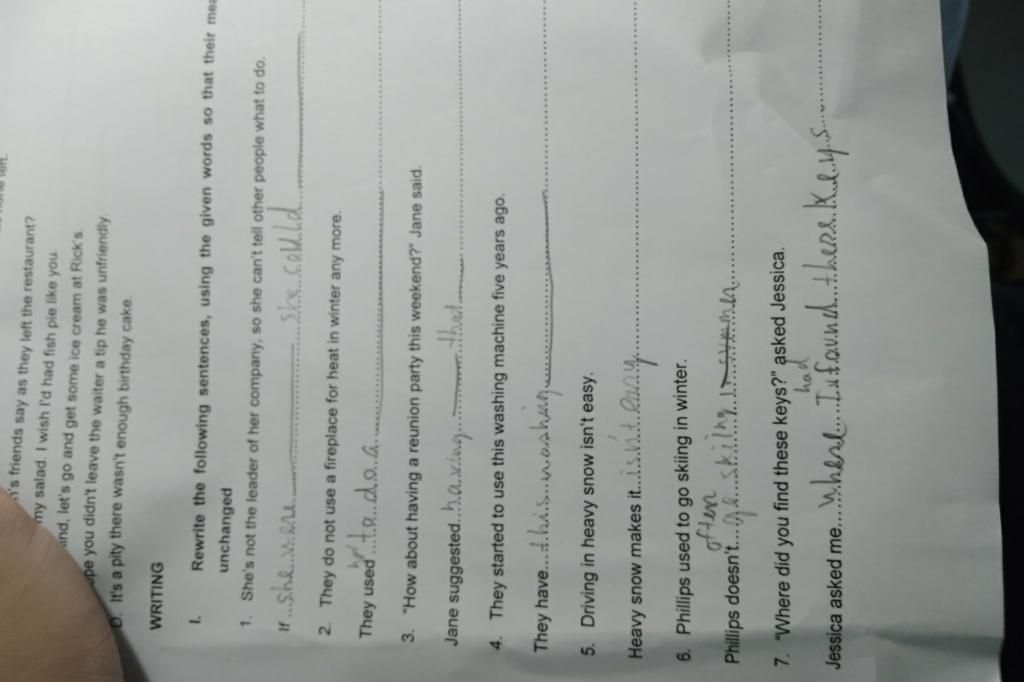 none left.
's friends say as they left the restaurant?
my salad. I wish I'd had fish pie like you.
ind, let's go and get some ice cream at Rick's.
pe you didn't leave the waiter a tip he was unfriendly.
D. It's a pity there wasn't enough birthday cake.
WRITING
I. Rewrite the following sentences, using the given words so that their mea
unchanged
1. She's not the leader of her company, so she can't tell other people what to do.
If ...she were she could
2. They do not use a fireplace for heat in winter any more.
They used...to do a
3. "How about having a reunion party this weekend?" Jane said.
Jane suggested..having that
4. They started to use this washing machine five years ago.
They have...this washing
5. Driving in heavy snow isn't easy.
Heavy snow makes it...isn't easy
6. Phillips used to go skiing in winter.
often
Phillips doesn't...go skiing
7. "Where did you find these keys?" asked Jessica.
had
Jessica asked me....where I found these keys